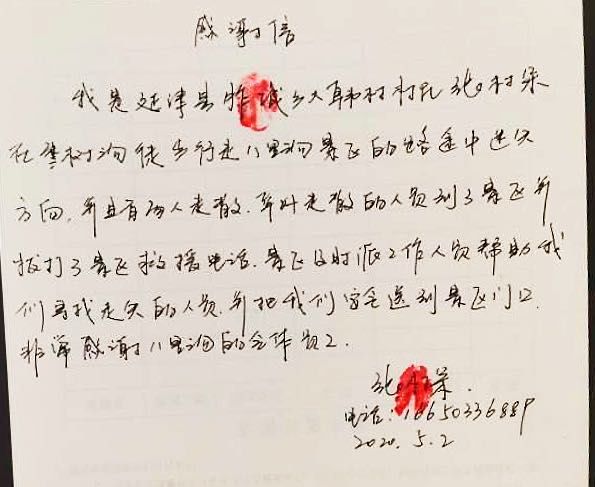 感谢信
我是延津县胙城乡大韩村村民张村荣
在 树沟徒步行走八里沟景区的路途中迷失
方向,并且有两人走散.幸好走散的人员到了景区并
拨打了景区救援电话.景区及时派工作人员帮助我
们寻找走失的人员.并把我们安全送到景区门口.
非常感谢八里沟的全体员工.
张 荣.
电话:16650336889
2020.5.2